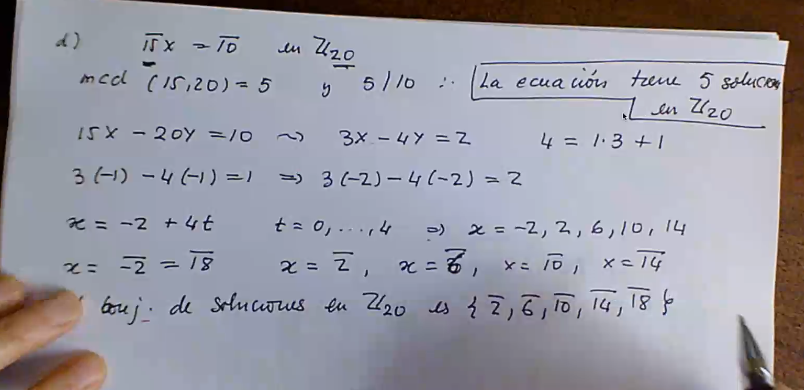 d) 15̅x = 10̅ en ℤ₂₀
mcd (15,20) = 5 y 5/10 ∴ La ecuación tiene 5 solucion
en ℤ₂₀
15x - 20y = 10 ⇝ 3x - 4y = 2 4 = 1·3 + 1
3(-1) - 4(-1) = 1 ⇒ 3(-2) - 4(-2) = 2
x = -2 + 4t t = 0, ..., 4 ⇒ x = -2, 2, 6, 10, 14
x = -2̅ = 18̅ x = 2̅, x = 6̅, x = 10̅, x = 14̅
conj. de soluciones en ℤ₂₀ es { 2̅, 6̅, 10̅, 14̅, 18̅ }